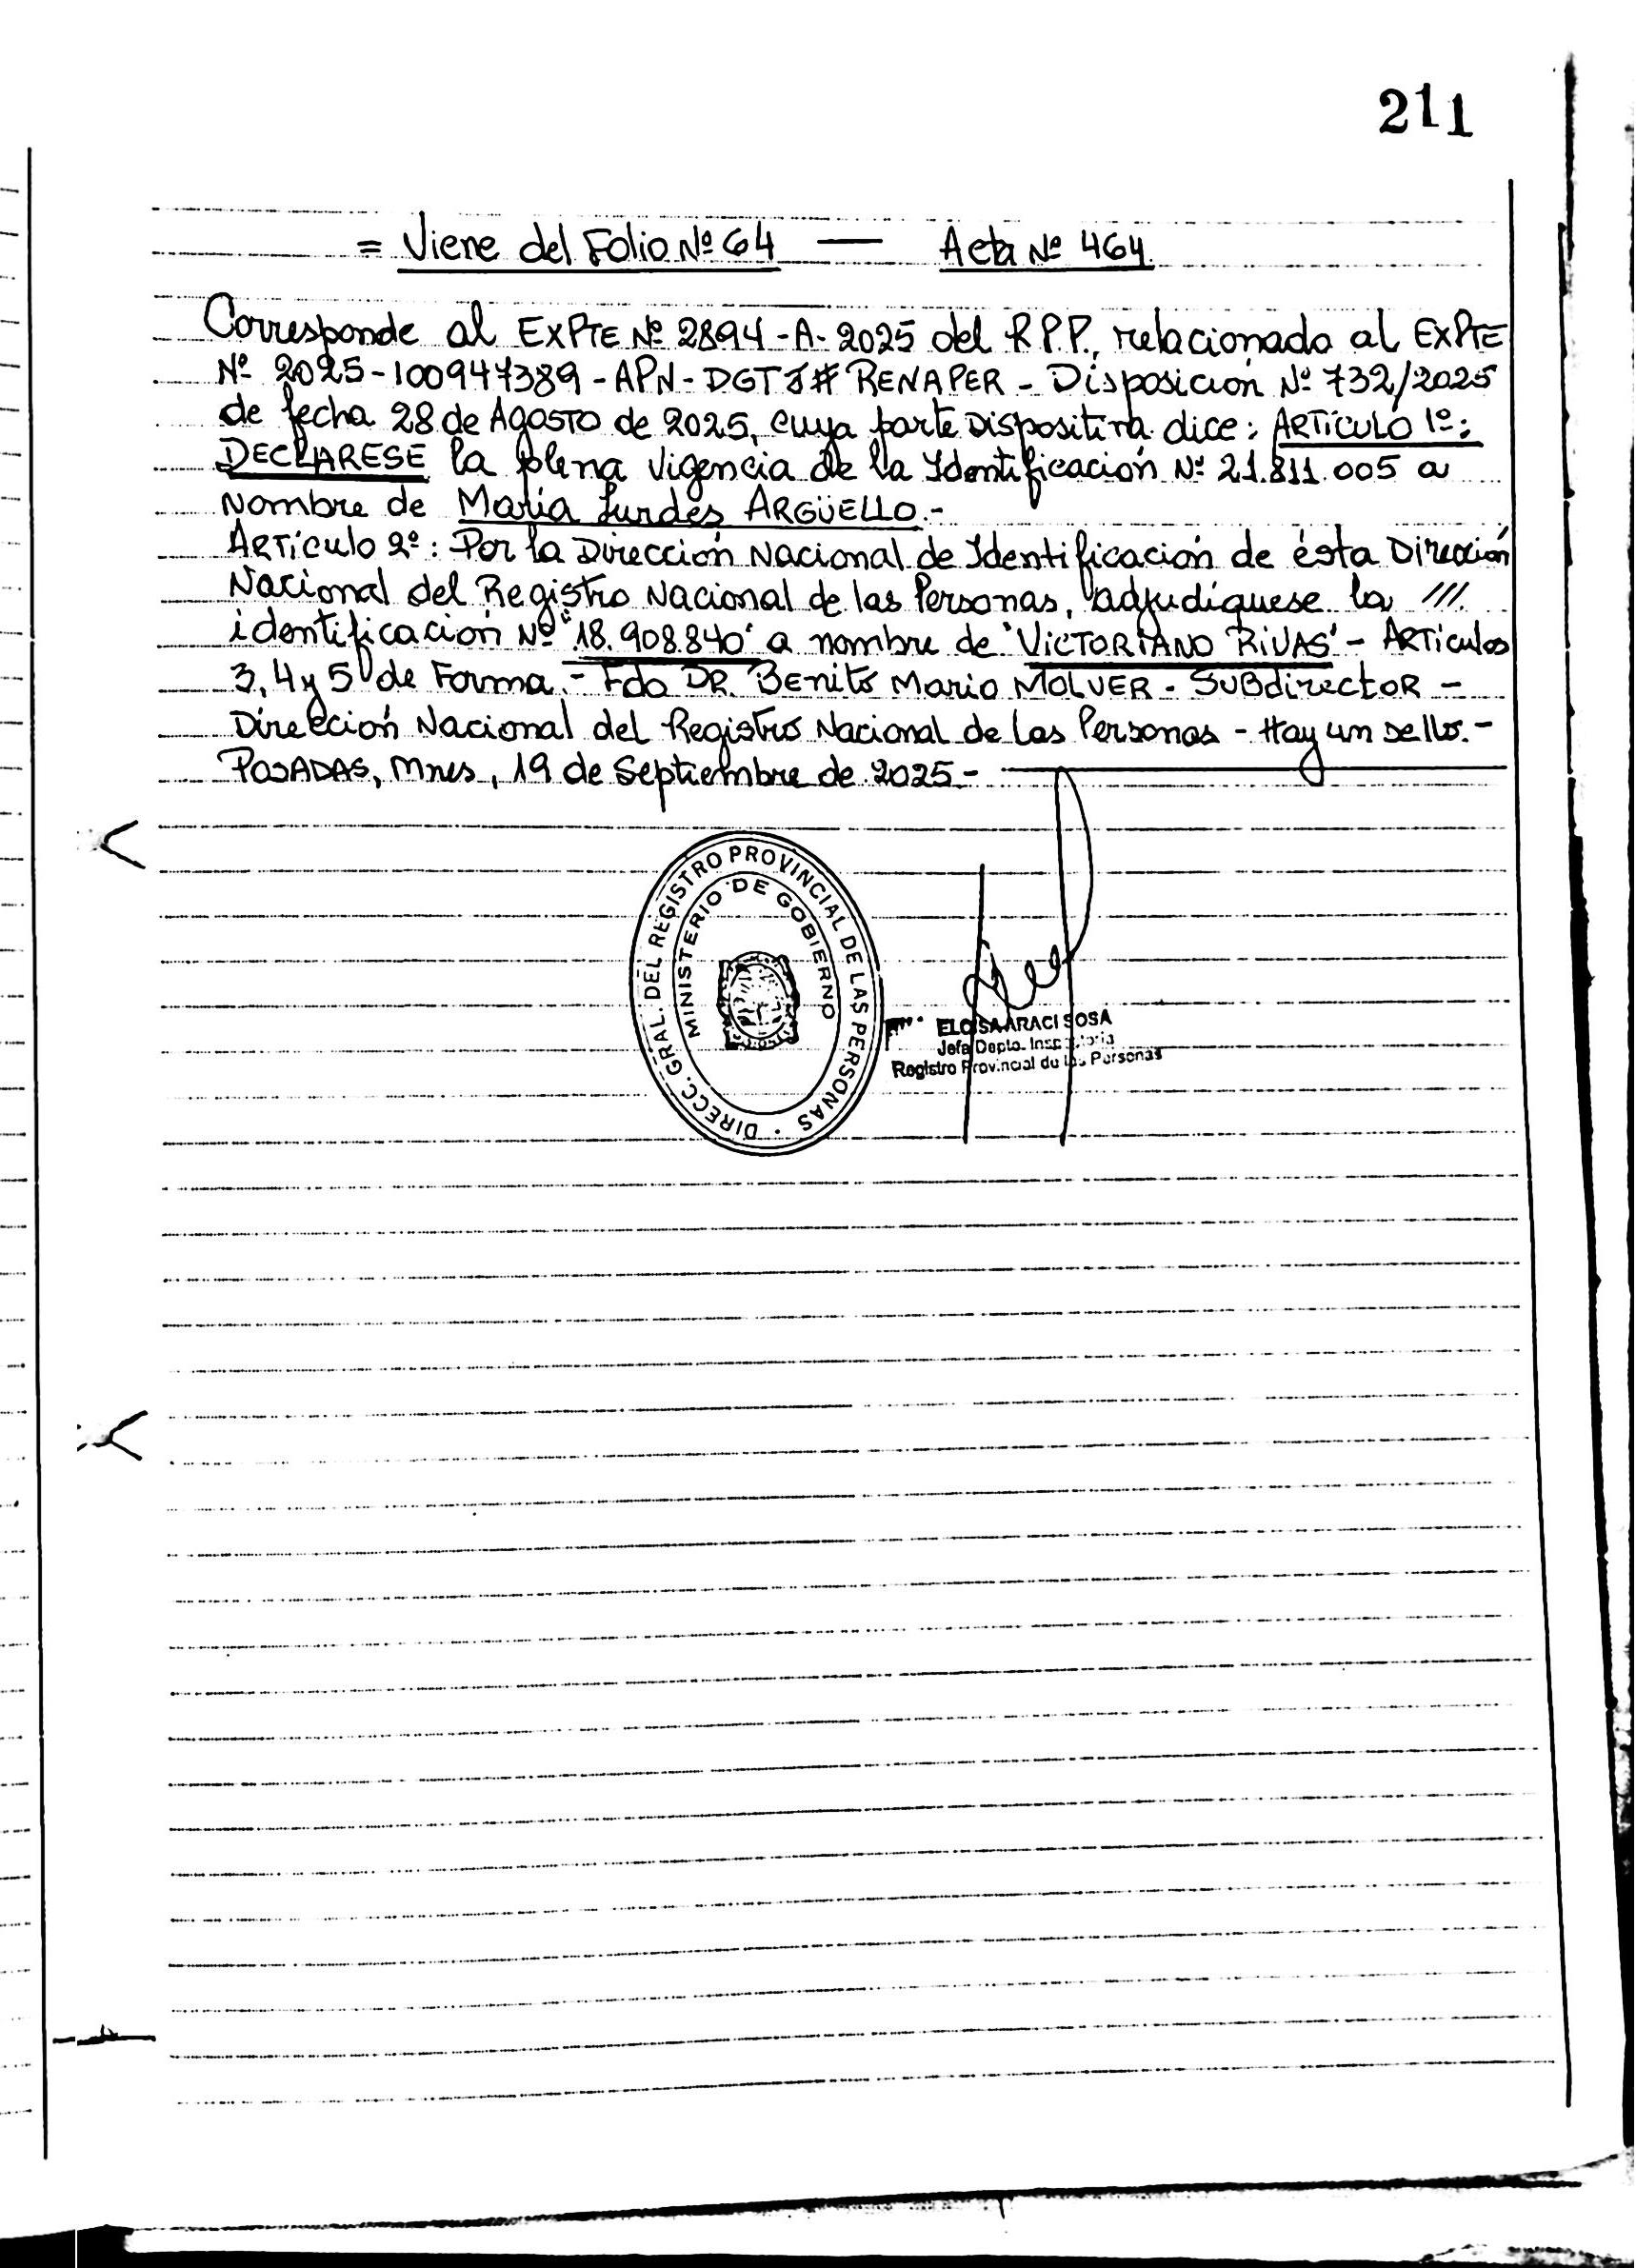 211
= Viene del Folio Nº 64 — Acta Nº 464.
Corresponde al EXPTE Nº 2894-A-2025 del R.P.P., relacionado al EXPTE
Nº 2025-100947389-APN-DGTJ# RENAPER - Disposición Nº 732/2025
de fecha 28 de Agosto de 2025, cuya parte Dispositiva dice: ARTÍCULO 1º:
DECLARESE la plena vigencia de la Identificación Nº 21.811.005 a
nombre de María Lurdes ARGÜELLO.-
ARTículo 2º: Por la Dirección Nacional de Identificación de ésta Dirección
Nacional del Registro Nacional de las Personas, adjudíquese la ///
identificación Nº "18.908.840" a nombre de "VICTORIANO RIVAS" - ARTículos
3, 4 y 5 de Forma.- Fdo DR. Benito Mario MOLVER - SUBdirector -
Dirección Nacional del Registro Nacional de Las Personas - Hay un sello.-
POSADAS, Mnes, 19 de Septiembre de 2025.-
DIRECC. GRAL. DEL REGISTRO PROVINCIAL DE LAS PERSONAS
MINISTERIO DE GOBIERNO
ELOISA ARACI SOSA
Jefa Depto. Inspectoría
Registro Provincial de las Personas